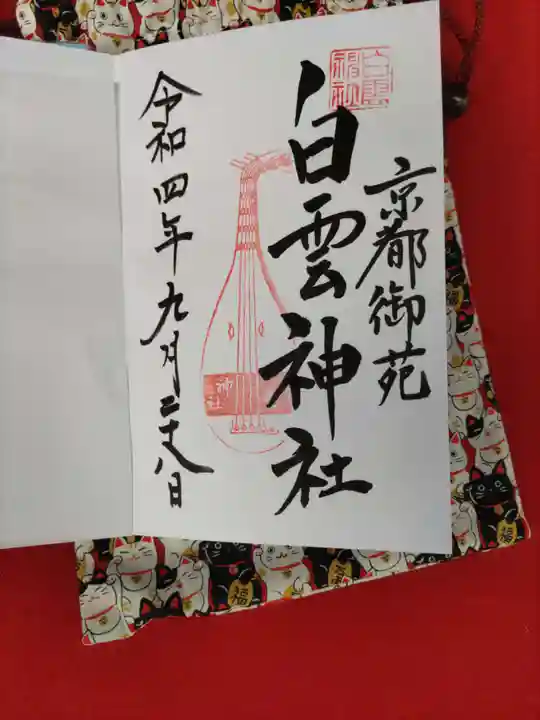 京都御苑
白雲神社
白雲
神社
神社
令和四年九月二十八日
福
福